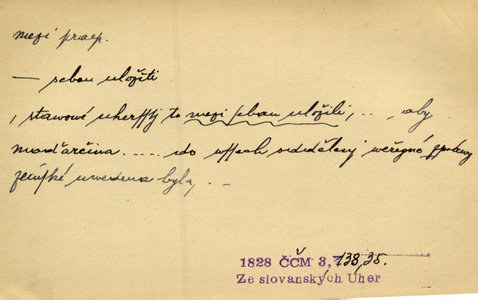 mezi praep.
— sebou uložiti
, stawowé uhersstj to mezi sebou uložili, ... aby
maďarčina ..... do wssech oddělenj weřegné spráwy
zemské uwedena byla, ..
1828 ČČM 3, 138,35.
Ze slovanských Uher